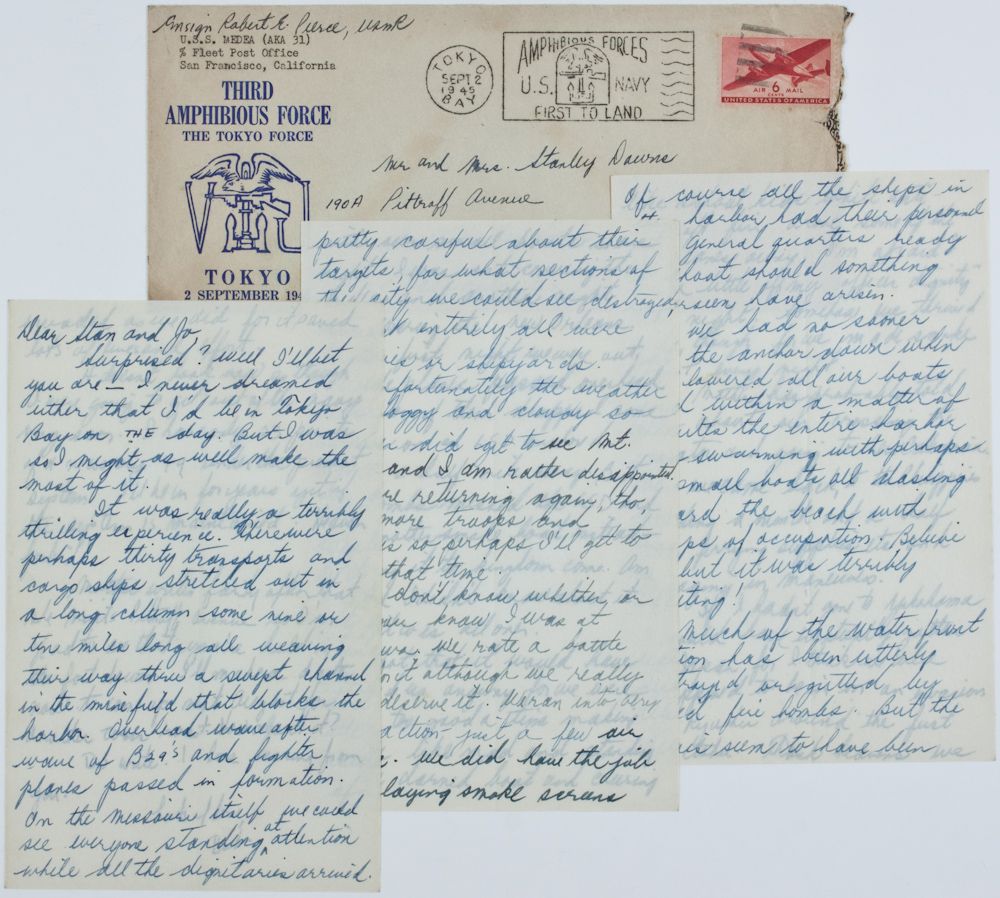 Ensign Robert E. Pierce, USNR
U.S.S. MEDEA (AKA 31)
% Fleet Post Office
San Francisco, California
THIRD
AMPHIBIOUS FORCE
THE TOKYO FORCE
TOKYO
2 SEPTEMBER 194
TOKYO
SEPT 2
1945
BAY
AMPHIBIOUS FORCES
U.S. NAVY
FIRST TO LAND
AIR 6 MAIL
CENTS
UNITED STATES OF AMERICA
Mr and Mrs. Stanley Downs
190A Pittroff Avenue
Dear Stan and Jo
Surprised? Well I'll bet
you are — I never dreamed
either that I'd be in Tokyo
Bay on THE day. But I was
so I might as well make the
most of it.
It was really a terribly
thrilling experience. There were
perhaps thirty transports and
cargo ships stretched out in
a long column some nine or
ten miles long all weaving
their way thru a swept channel
in the mine field that blocks the
harbor. Overhead wave after
wave of B29's and fighter
planes passed in formation.
On the Missouri itself we could
see everyone standing at attention
while all the dignitaries arrived.
Of course all the ships in
harbor had their personnel
General quarters ready
hoot should something
seen have arisen.
we had no sooner
the anchor down when
lowered all our boats
within a matter of
the entire harbor
swarming with perhaps
small boats all dashing
ard the beach with
ps of occupation. Believe
but it was terribly
iting!
Much of the water front
tion has been utterly
royed or gutted by
fire bombs. But the
seem to have been
pretty careful about their
targets for what sections of
the city we could see destroyed
entirely all were
or shipyards.
fortunately the weather
foggy and cloudy so
did not get to see Mt.
and I am rather disappointed.
re returning again, tho
more troops and
so perhaps I'll get to
that time
don't know whether or
know I was at
wa. We rate a battle
it although we really
deserve it. We ran into very
action just a few air
we did have the job
laying smoke screens